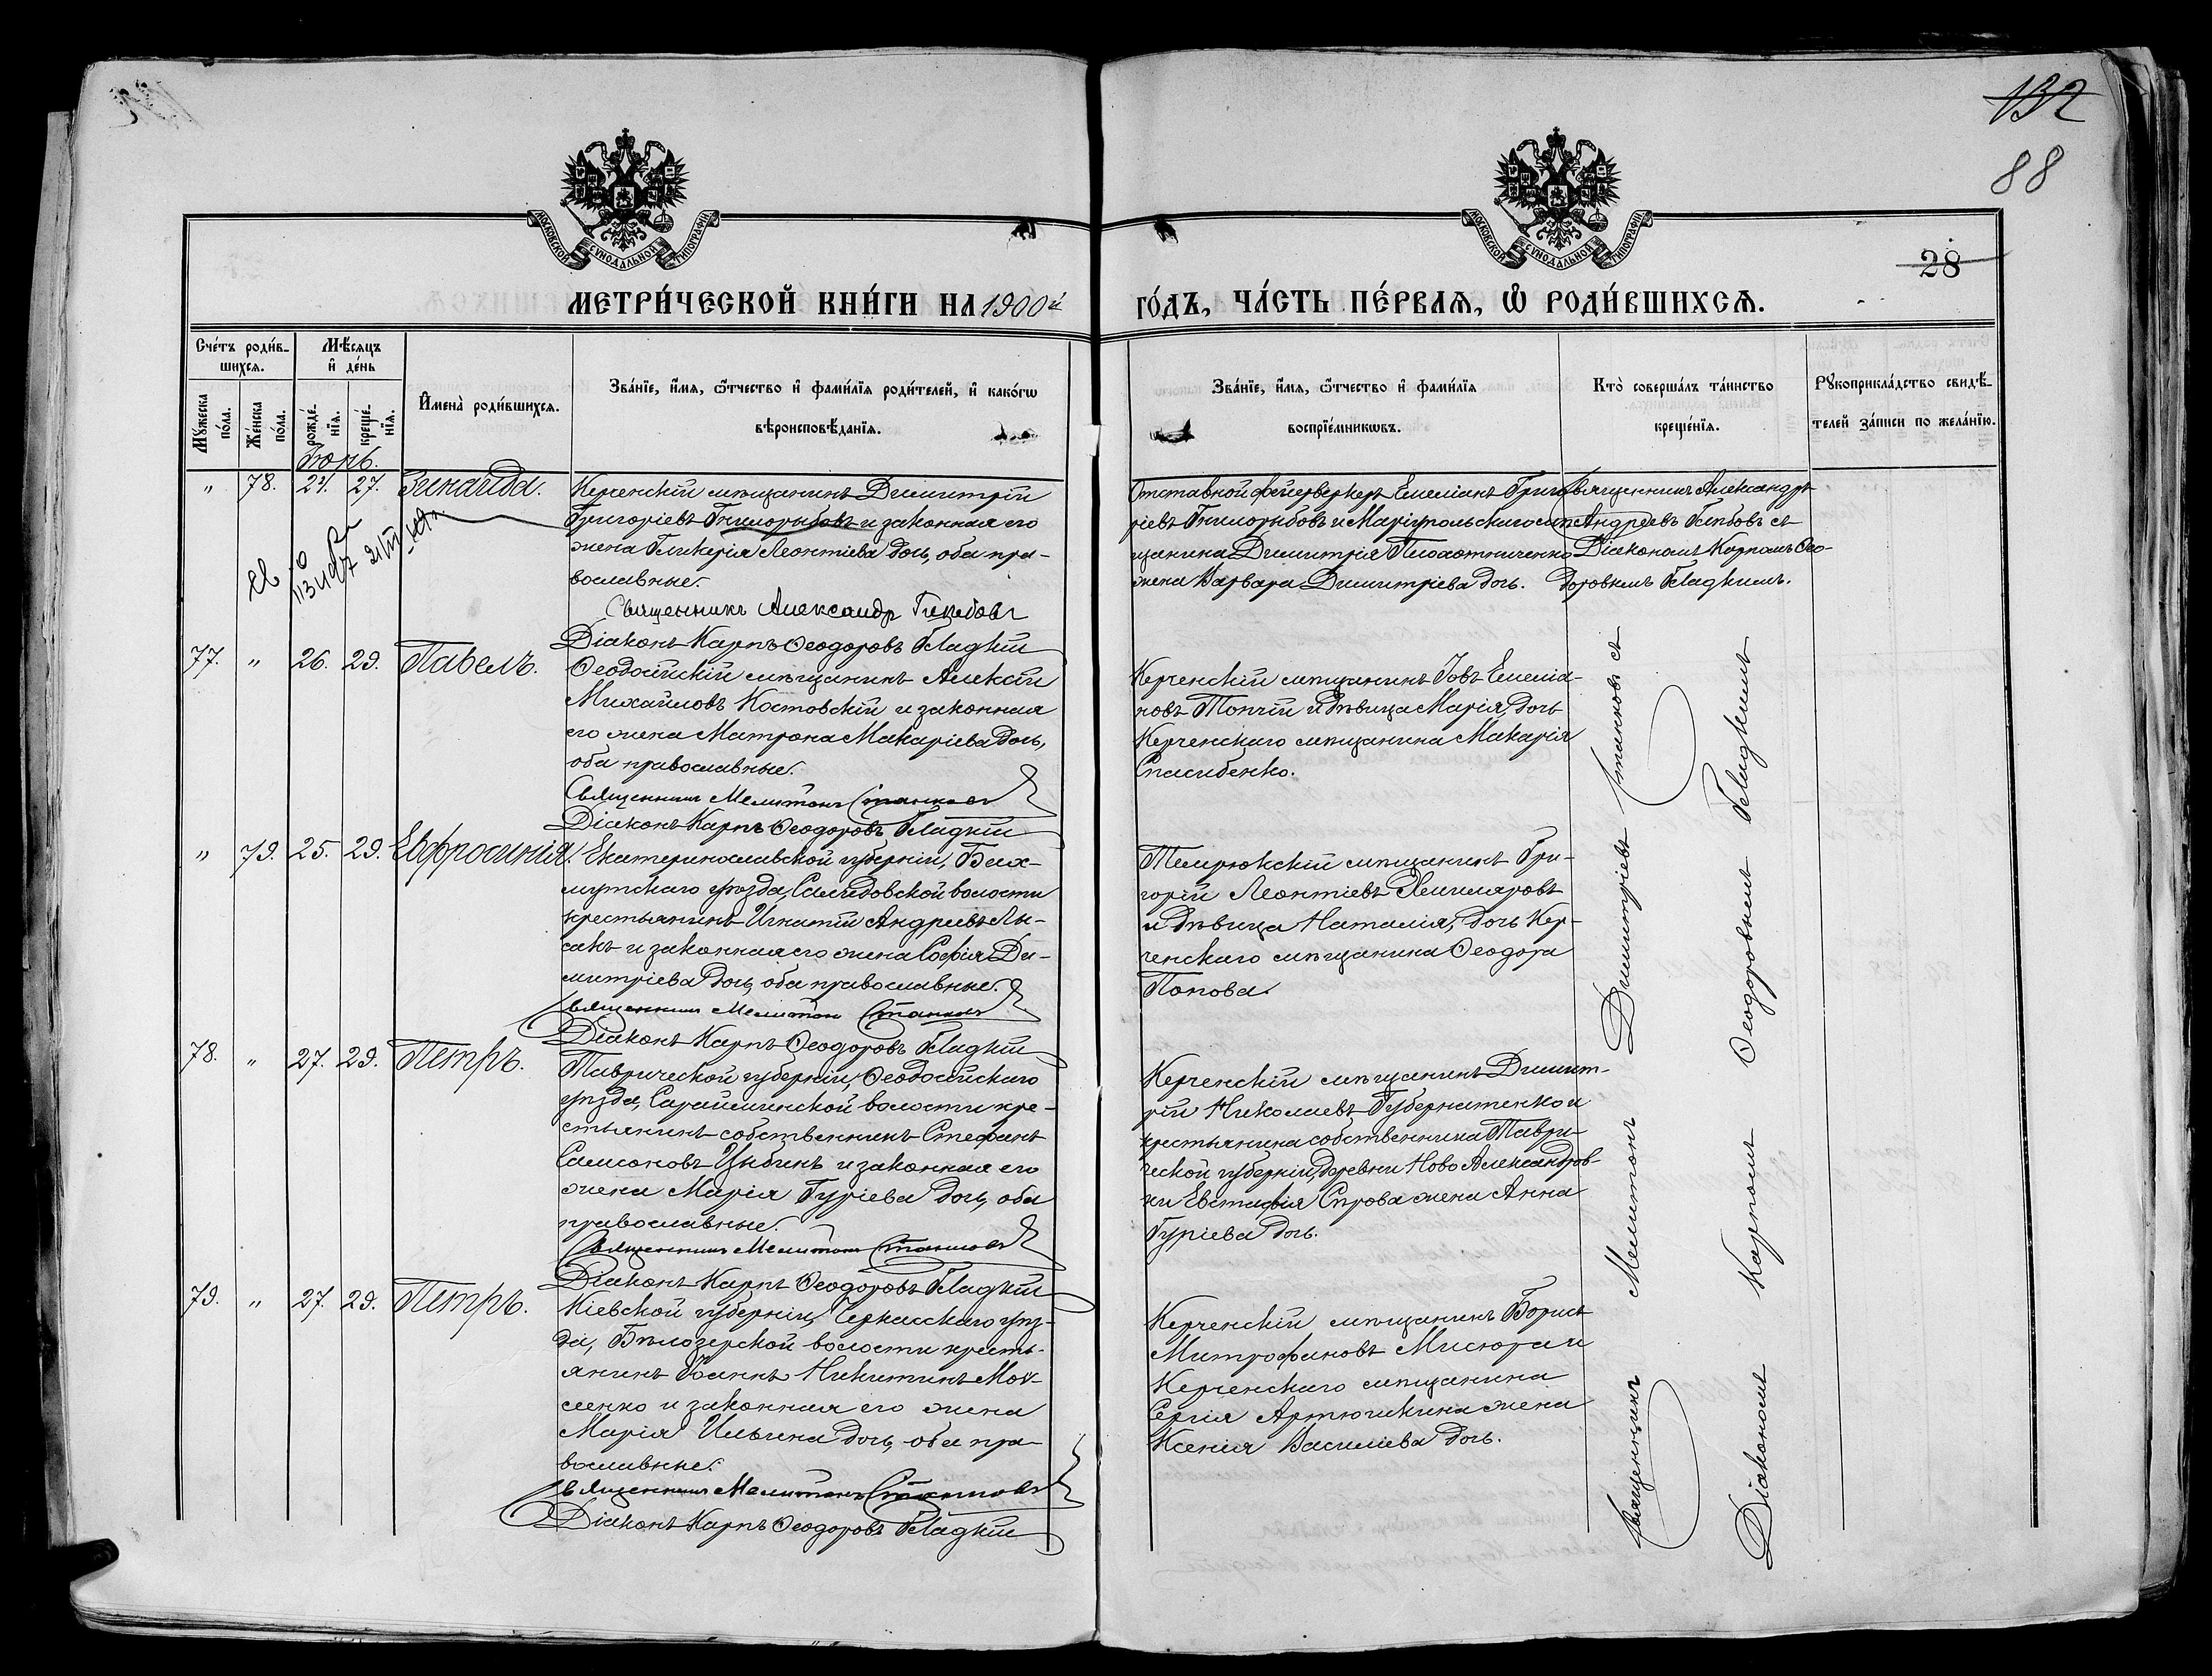 132
88
28
МОСКОВСКОЙ СѴНОДАЛЬНОЙ ТИПОГРАФІИ
МОСКОВСКОЙ СѴНОДАЛЬНОЙ ТИПОГРАФІИ
МЕТРИ́ЧЕСКОЙ КНИ́ГИ НА 1900й ГО́ДЪ, ЧА́СТЬ ПЕ́РВАЯ, Ѡ РОДИ́ВШИХСЯ.
Сче́тъ роди́в-
шихся.
Мѣ́сяцъ
и҆ де́нь
Мꙋ́жеска по́ла.
Же́нска по́ла.
рожде́-
нїя.
креще́-
нїя.
И҆мена̀ роди́вшихся.
Зва́нїе, и҆́мя, ѻ҆́тчество и҆ фами́лїя роди́телей, и҆ како́гѡ
вѣроисповѣ́данїя.
Зва́нїе, и҆́мя, ѻ҆́тчество и҆ фами́лїя
воспрїе́мникѡвъ.
Кто̀ соверша́лъ та́инство
креще́нїя.
Рꙋкоприкла́дство свидѣ́-
телей за́писи по жела́нїю.
Іюнь.
" 78. 24. 27. Зинаида.
Керченскій мѣщанинъ Димитрій
Григоріевъ Гнилорыбовъ и законная его
жена Гликерія Леонтіева дочь, оба пра-
вославные.
Священникъ Александр Глѣбовъ
Діаконъ Карпъ Ѳеодоровъ Гладкій
Отставной фейерверкеръ Емеліанъ Григо-
ріевъ Гнилорыбовъ и Маріупольскаго мѣ-
щанина Димитрія
жена Варвара Димитріева дочь.
Священникъ Александръ
Андреевъ Глѣбовъ съ
Діакономъ Карпомъ Ѳео-
доровымъ Гладкимъ.
77. " 26. 29. Павелъ.
Ѳеодосійскій мѣщанинъ Алексій
Михайловъ Костовскій и законная
его жена Матрона Макаріева дочь,
оба православные.
Священникъ Мелитонъ Станковъ
Діаконъ Карпъ Ѳеодоровъ Гладкій
Керченскій мѣщанинъ Іовъ Емеліа-
новъ Топчій и дѣвица Марія, дочь
Керченскаго мѣщанина Макарія
Спасибенко.
" 79. 25. 29. Евфросинія.
Екатеринославской губерніи, Бах-
мутскаго уѣзда, Салидовской волости
крестьянинъ Игнатій Андреевъ Лы-
сакъ и законная его жена Софія Ди-
митріева дочь, оба православные.
Священникъ Мелитон Станковъ
Діаконъ Карпъ Ѳеодоровъ Гладкій
Темрюкскій мѣщанинъ Гри-
горій Леонтіевъ
и дѣвица Наталія, дочь Кер-
ченскаго мѣщанина Ѳеодора
Попова.
78. " 27. 29. Петръ.
Таврической губерніи, Ѳеодосійскаго
уѣзда, Сарайминской волости кре-
стьянинъ-собственникъ Стефанъ
Самсоновъ Цыбинъ и законная его
жена Марія Гуріева дочь, оба
православные.
Священникъ Мелитонъ Станковъ
Діаконъ Карпъ Ѳеодоровъ Гладкій
Керченскій мѣщанинъ Димит-
рій Николаевъ Губернатенко и
крестьянина собственника Таври-
ческой губерніи, деревни Ново Александров-
ки Евстафія Сѣрова жена Анна
Гуріева дочь.
79. " 27. 29. Петръ.
Кіевской губерніи, Черкасскаго уѣз-
да, Бѣлозерской волости кресть-
янинъ Іоаннъ Никитинъ Мои-
сенко и законная его жена
Марія Ильина дочь, оба пра-
вославные.
Священникъ Мелитонъ Станковъ
Діаконъ Карпъ Ѳеодоровъ Гладкій
Керченскій мѣщанинъ Борисъ
Митрофановъ Мисюра и
Керченскаго мѣщанина
Сергія Артюшкина жена
Ксенія Василіева дочь.
Священникъ Мелитонъ Димитріевъ Станковъ съ
Діакономъ Карпомъ Ѳеодоровымъ Гладкимъ